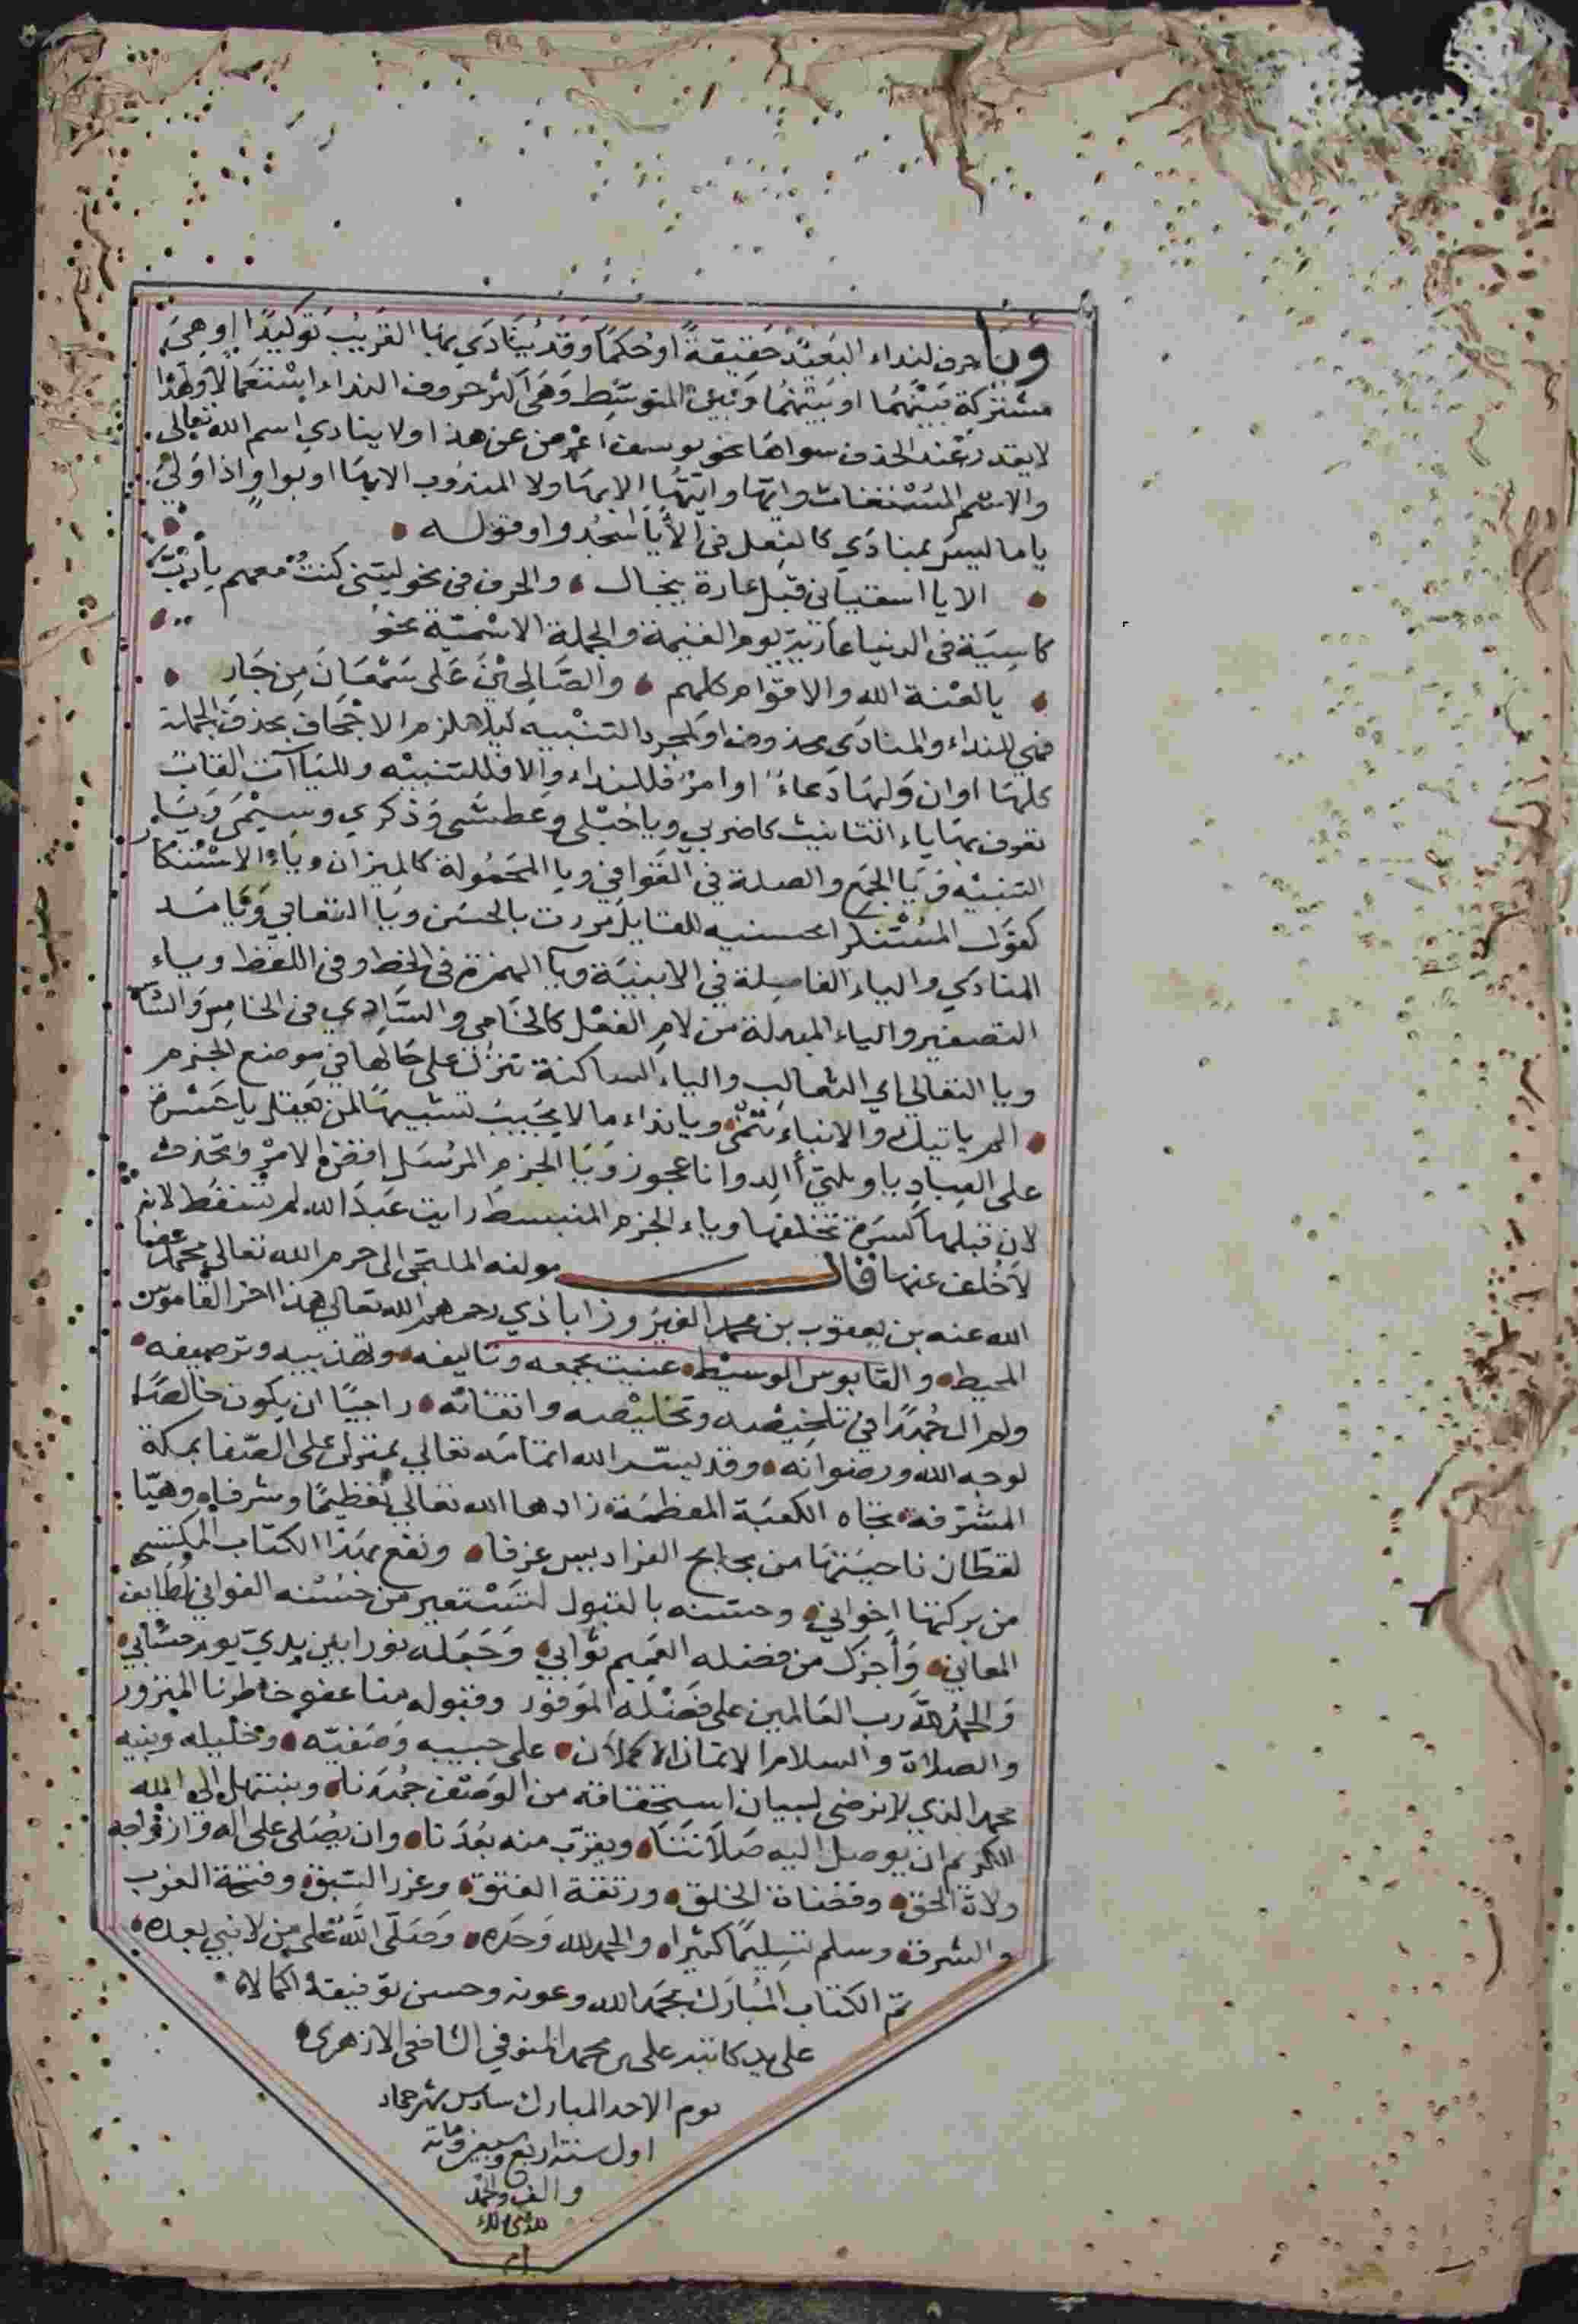 ويا حرف لنداء البعيد حقيقةً او حكمًا وقد ينادي بها القريب توكيدًا او هي
مشتركة بينهما او بينهما وبين المتوسط وهي اكثر حروف النداء استعمالا ولهذا
لا يقدر عند الحذف سواها نحو يوسف اعرض عن هذا ولا ينادي اسم الله تعالى
والاسم المستغاث وايها وايتها الا بها ولا المندوب الا بها او بوا واذا ولي
يا ما ليس بمنادي كالفعل في الا يا اسجدوا وقوله
الا يا اسقياني قبل غارة سنجال والحرف في نحو يا ليتني كنت معهم يا رب
كاسية في الدنيا عارية يوم القيمة والجملة الاسمية نحو
يا لعنة الله والاقوام كلهم والصالحين على سمعان من جار
فهي للنداء والمنادى محذوف او لمجرد التنبيه ليلا يلزم الاجحاف بحذف الجملة
كلها او ان وليها دعاء او امر فللنداء والا فللتنبيه ولليآات القاب
تعرف بها ياء التانيث كاضربي ويا حبلى وعطشى وذكرى وسيمى ويا
التثنيه ويا الجمع والصلة في القوافي ويا المحولة كالميزان وياء الاستنكار
كقول المستنكر ا لحسنيه للقايل مررت بالحسن ويا التعايي ويا مد
المنادي والياء الفاصلة في الابنية ويا الهمزة في الخط وفي اللفظ وياء
التصغير والياء المبدلة من لام الفعل كالخامي والسادي في الخامس والسا
ويا الثعالي اي الثعالب والياء الساكنة تترك على حالها في موضع الجزم
الم ياتيك والانباء تنمى ويا نداء ما لا يجيب تشبيها لمن يعقل يا حسرة
على العباد يا ويلتي أالد وانا عجوز ويا الجزم المرسل اقض الامر وتحذف
لان قبلها كسرة تخلفها وياء الجزم المنبسط رايت عبد الله لم تسقط لانه
لا خلف عنها قال مولفه الملتجي الى حرم الله تعالى محمد عفا
الله عنه بن يعقوب بن محمد الفيروزاباذي رحمهم الله تعالى هذا اخر القاموس
المحيط والقابوس الوسيط عنيت بجمعه وتاليفه وتهذيبه وترصيفه
ولم ال جهدا في تلخيصه وتخليصه واتقانه راجيًا ان يكون خالصا
لوجه الله ورضوانه وقد يسر الله اتمامه تعالى بمنزلي على الصفا بمكة
المشرفة تجاه الكعبة المعظمة زادها الله تعالى تعظيمًا وشرفا وهيا
لقطان ناحيتها من بحابح الفراديس غرفا ونفع بهذا الكتاب المكتسي
من بركتها اخواني وحسنه بالقبول لتستعير من حسنه الغواني لطايف
المعاني وأجزل من فضله العميم ثوابي وجعله نورا بين يدي يوم حسابي
والحمد لله رب العالمين على فضله الموفور وقبوله منا عفو خاطرنا المنزور
والصلاة والسلام الاتمان الاكملان على حبيبه وصفيه وخليله ونبيه
محمد الذي لا نرضى لبيان استحقاقه من الوصف جهدنا ونبتهل الى الله
الكريم ان يوصل اليه صلاتنا ويقرب منه بعدنا وان يصلى على اله وازواجه
ولاة الحق وقضاة الخلق ورتقة الفتق وغرر السبق وفتحة الغرب
والشرق وسلم تسليمًا كثيرا والحمد لله وحده وصلى الله على من لا نبي بعده
تم الكتاب المبارك بحمد الله وعونه وحسن توفيقه
على يد كاتبه على بن محمد المنوفي الشافعي الازهري
يوم الاحد المبارك سادس شهر جماد
اول سنة اربع وسبعين وماية
والف والحمد
لله